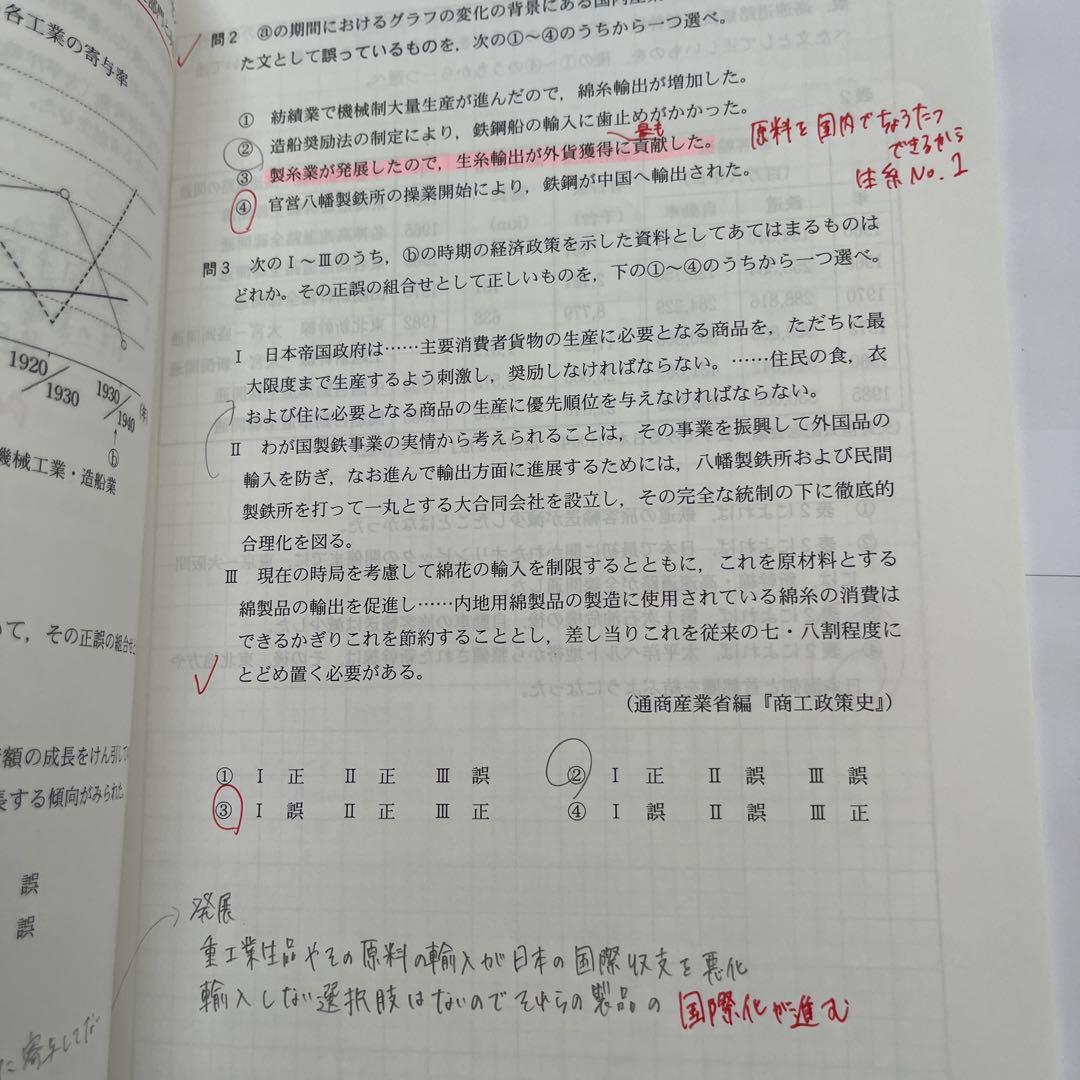 各工業の寄与率
1920
1930
1930
1940
(年)
ⓑ
機械工業・造船業
て，その正誤の組合せ
額の成長をけん引して
長する傾向がみられた
誤
誤
問2 ⓐの期間におけるグラフの変化の背景にある国内産業
た文として誤っているものを，次の①～④のうちから一つ選べ。
① 紡績業で機械制大量生産が進んだので，綿糸輸出が増加した。
② 造船奨励法の制定により，鉄鋼船の輸入に歯止めがかかった。
最も
③ 製糸業が発展したので，生糸輸出が外貨獲得に貢献した。
④ 官営八幡製鉄所の操業開始により，鉄鋼が中国へ輸出された。
原料を国内でちょうたつ
できるから
生糸No.1
問3 次のⅠ～Ⅲのうち，ⓑの時期の経済政策を示した資料としてあてはまるものは
どれか。その正誤の組合せとして正しいものを，下の①～④のうちから一つ選べ。
Ⅰ 日本帝国政府は……主要消費者貨物の生産に必要となる商品を，ただちに最
大限度まで生産するよう刺激し，奨励しなければならない。……住民の食，衣
および住に必要となる商品の生産に優先順位を与えなければならない。
Ⅱ わが国製鉄事業の実情から考えられることは，その事業を振興して外国品の
輸入を防ぎ，なお進んで輸出方面に進展するためには，八幡製鉄所および民間
製鉄所を打って一丸とする大合同会社を設立し，その完全な統制の下に徹底的
合理化を図る。
Ⅲ 現在の時局を考慮して綿花の輸入を制限するとともに，これを原材料とする
綿製品の輸出を促進し……内地用綿製品の製造に使用されている綿糸の消費は
できるかぎりこれを節約することとし，差し当りこれを従来の七・八割程度に
とどめ置く必要がある。
（通商産業省編『商工政策史』）
① Ⅰ 正 Ⅱ 正 Ⅲ 誤 ② Ⅰ 正 Ⅱ 誤 Ⅲ 誤
③ Ⅰ 誤 Ⅱ 正 Ⅲ 正 ④ Ⅰ 誤 Ⅱ 誤 Ⅲ 正
発展
重工業生品やその原料の輸入が日本の国際収支を悪化
輸入しない選択肢はないのでそれらの製品の国際化が進む